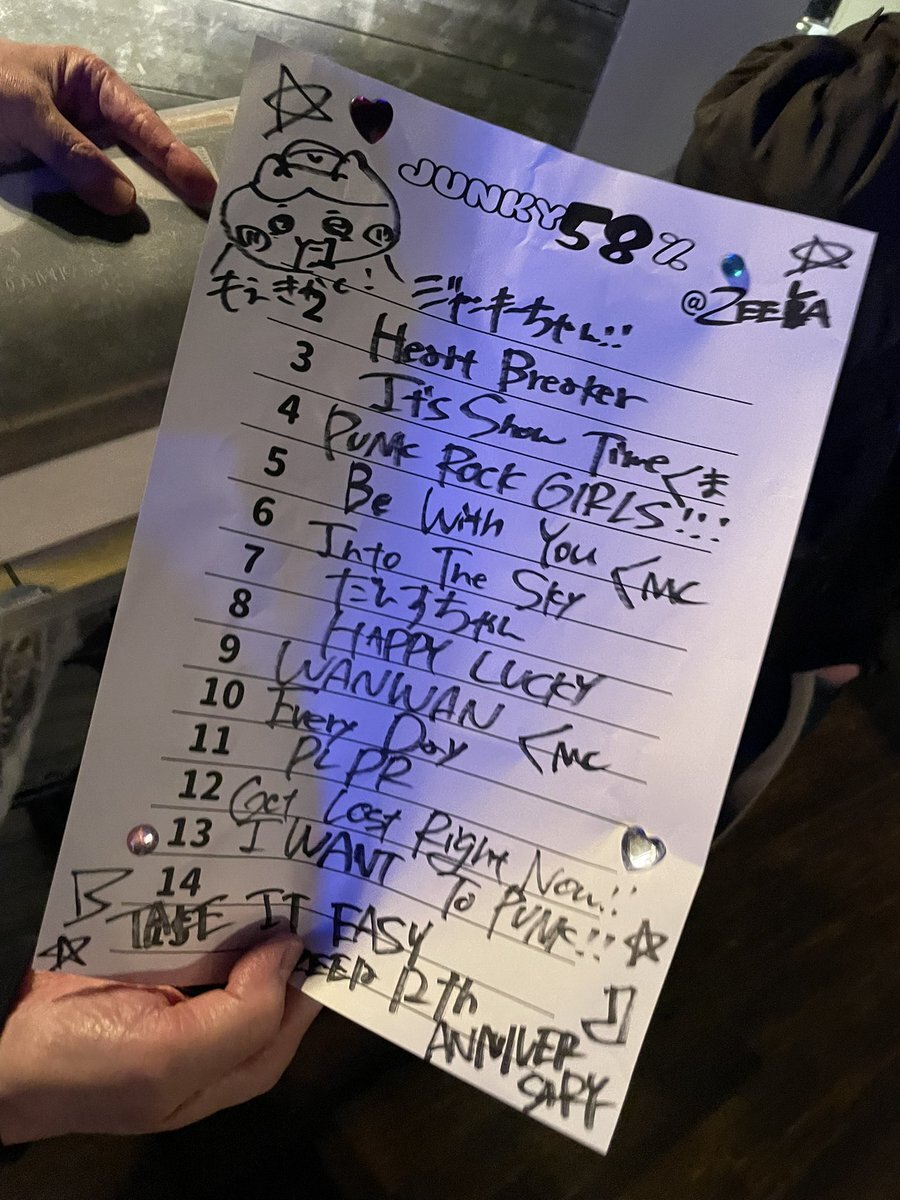 JUNKY58%
@ZEELA
もえきゃで!
ジャンキーちゃん!!
2 Heart Breaker
3 It's Show Time くま
4 PUNK ROCK GIRLS!!!
5 Be With You <MC
6 Into The Sky
7 だいすちゃん
8 HAPPY LUCKY
9 WANWAN <MC
10 Every Day
11 PLPR
12 Get Lost Right Now!!
13 I WANT TO PUNK!!
14
TAKE IT EASY
12th
ANNIVER
SARY